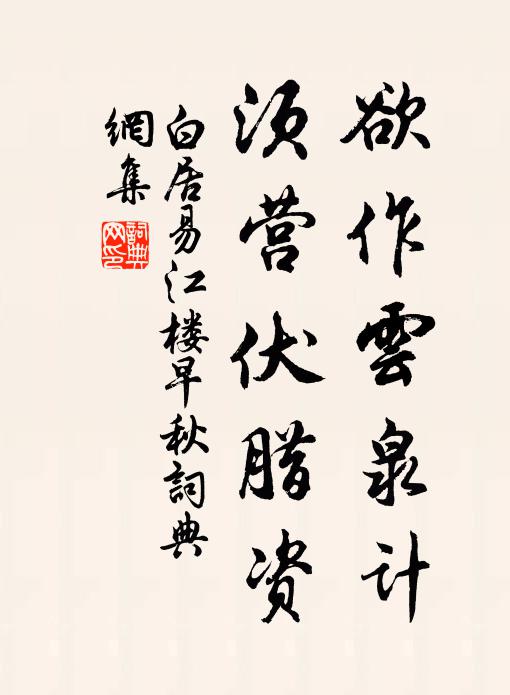 欲作雲泉计
须营伏腊资
白居易江楼早秋詞典
網集
詞典
网印